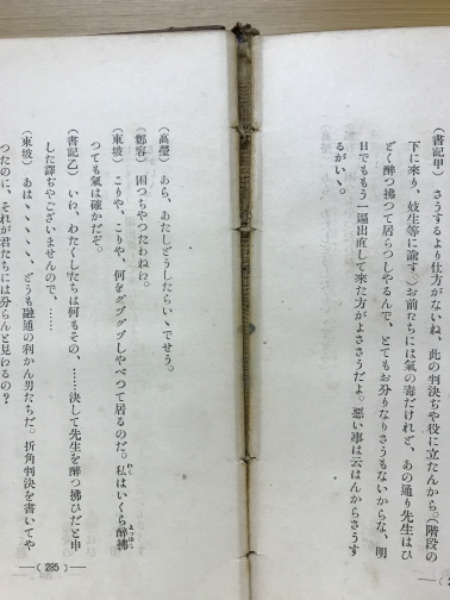 (書記甲) さうするより仕方がないね、此の判決ぢや役に立たんから。(階段の
下に來り、妓生等に諭す。)お前たちには氣の毒だけれど、あの通り先生はひ
どく醉つ拂つて居らつしやるんで、とてもお分りなりさうもないからな、明
日でももう一遍出直して來た方がよささうだよ。惡い事は云はんからさうす
るがいゝ。
(高瑩) あら、あたしどうしたらいゝでせう。
(鄭容) 困つちやつたわねわ。
(東坡) こりや、こりや、何をグブグブしやべつて居るのだ。私はいくら醉拂
つても氣は確かだぞ。
(書記乙) いわ、わたくしたちは何もその、……決して先生を醉つ拂ひだと申
した譯ぢやございませんので、……
(東坡) あはゝゝゝゝ、どうも融通の利かん男たちだ。折角判決を書いてや
つたのに、それが君たちには分らんと見わるの?
—( 285 )—